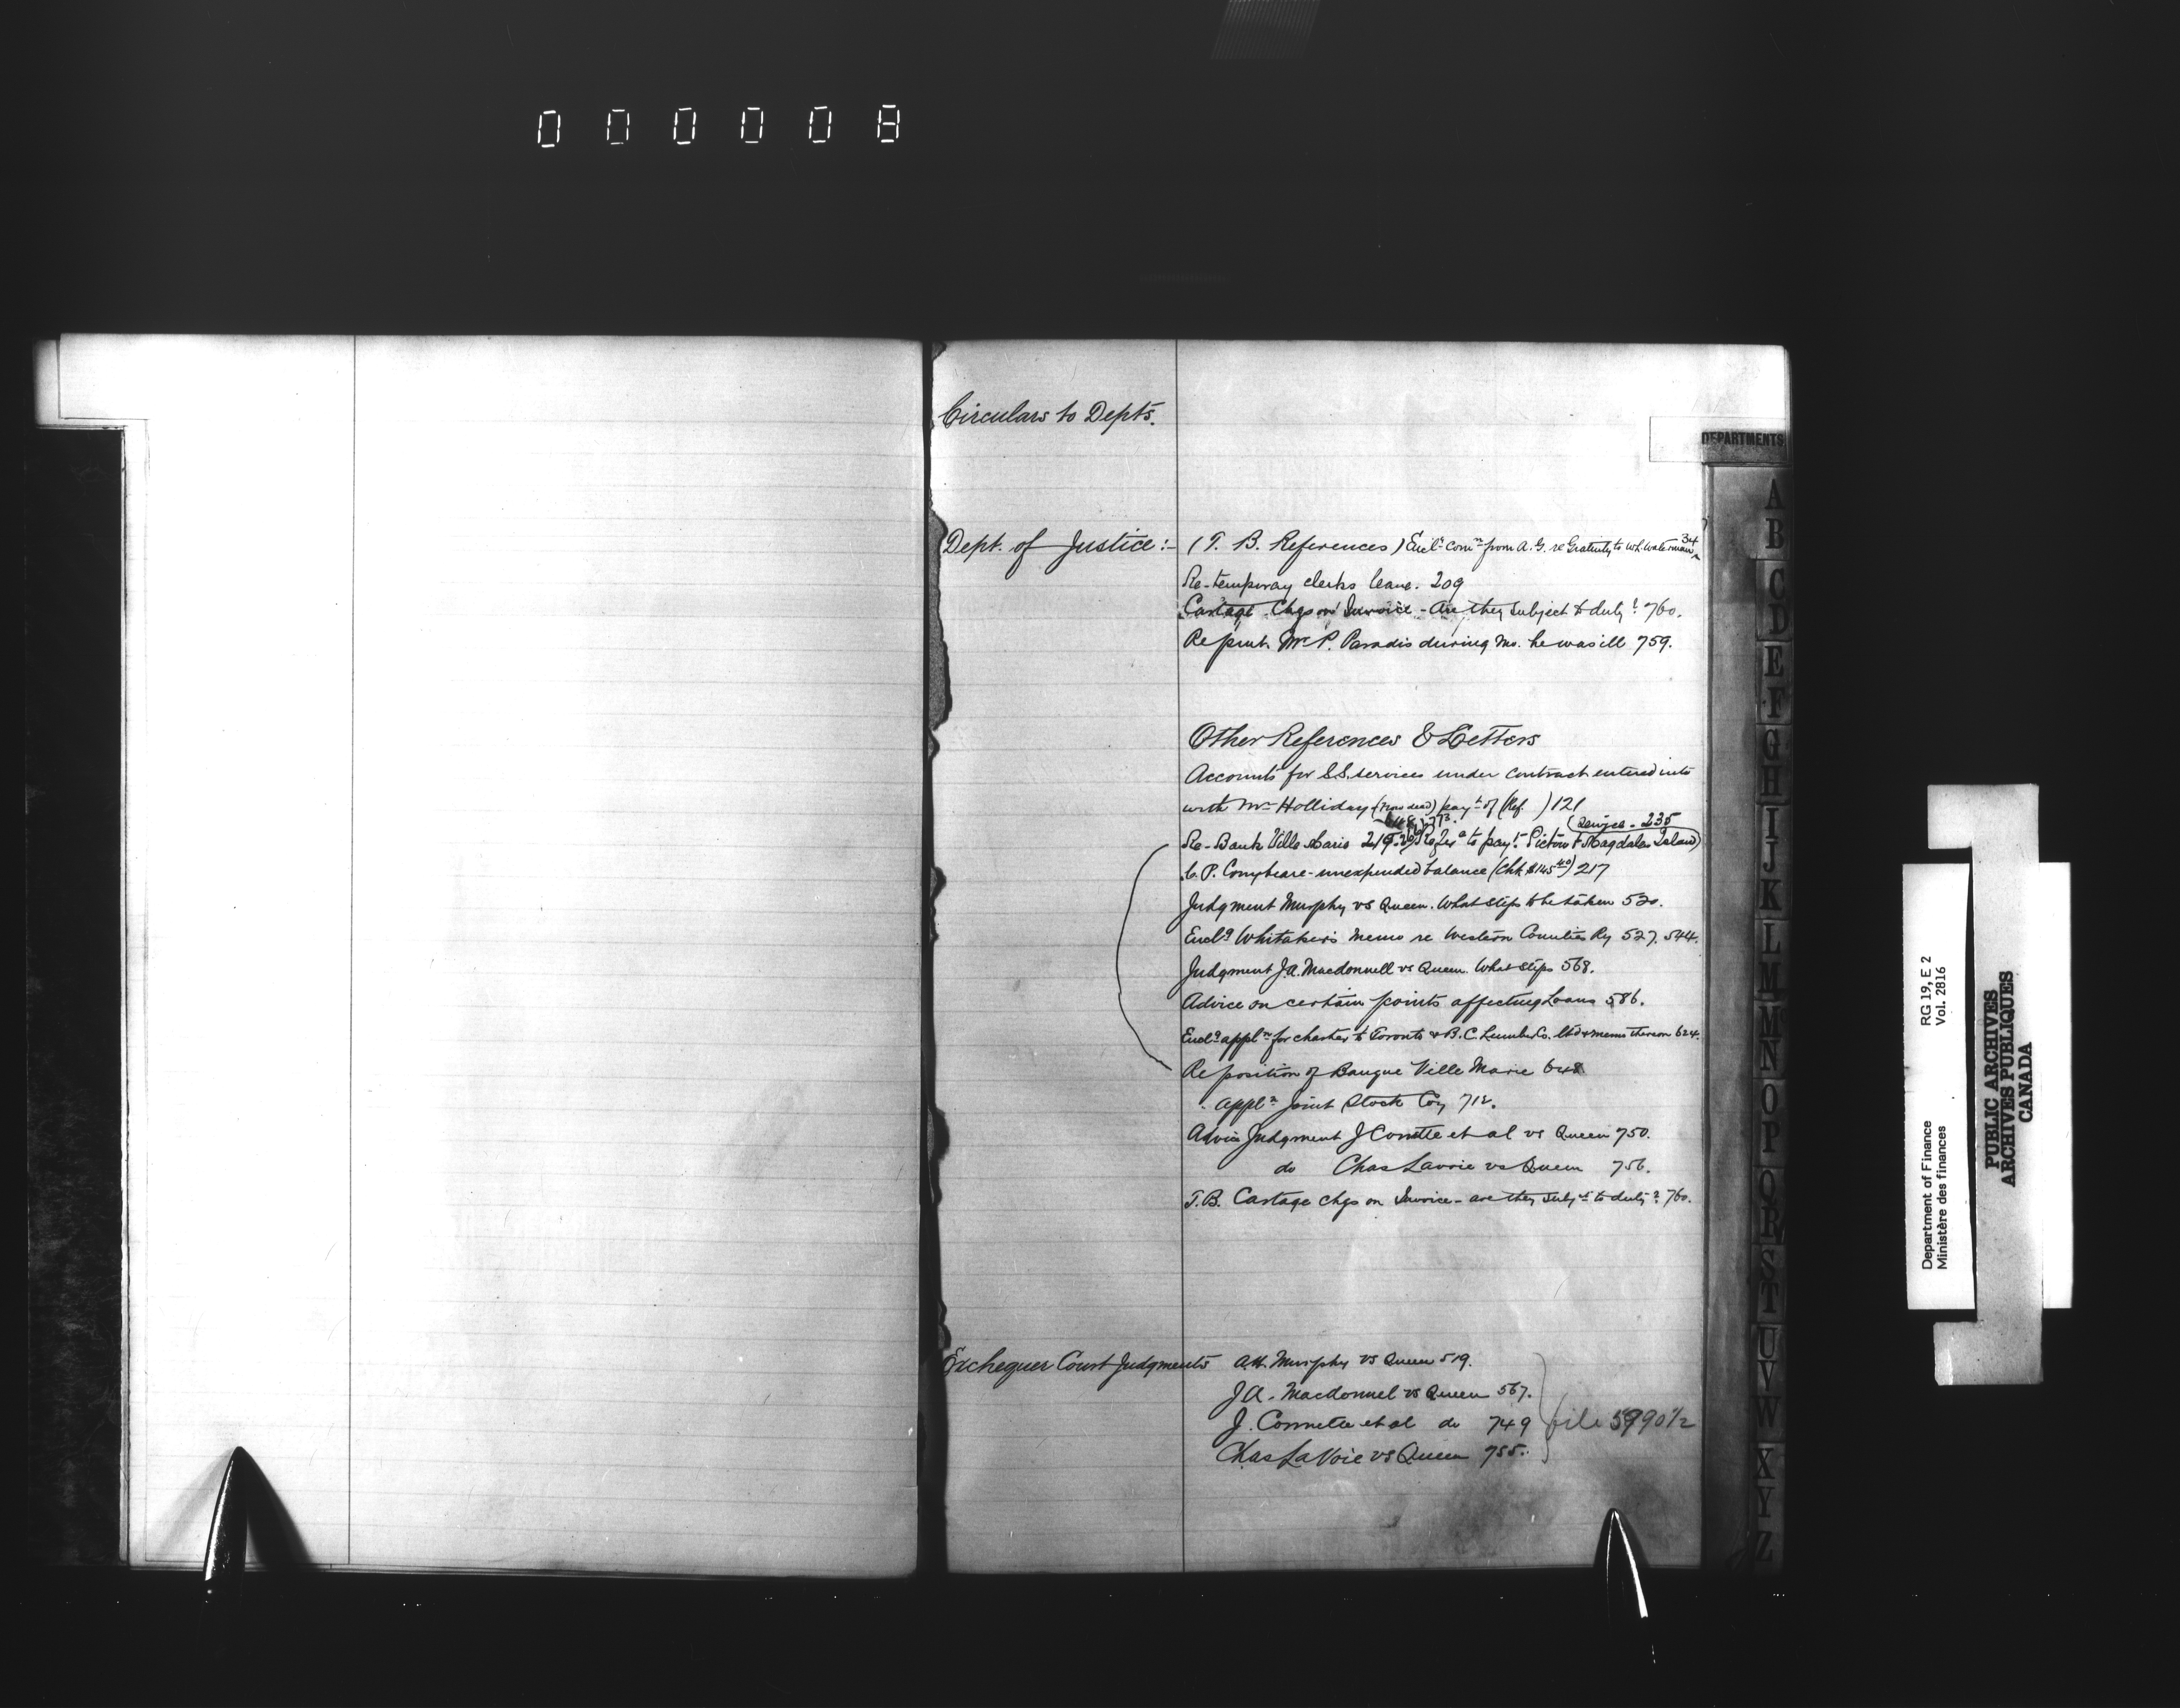 000008
Circulars to Depts.
DEPARTMENTS
Dept. of Justice:- (T. B. References) Encl^g com^n from A. G. re Gratuity to W.H. Waterman 34
Re-temporary clerks leave. 209
Cartage Chgs on Invoice - Are they subject to duty? 760.
Re paymt. Mr P. Paradis during mo. he was ill 759.
Other References & Letters
Accounts for S.S. services under contract entered into
with Mr Holliday (now dead) pay^t of (Ref. ) 121
(Service - 235
Re-Bank Ville Marie 219. to pay^t Pictou & Magdalen Island)
C. P. Conybeare - unexpended balance (Chk $145 40) 217
Judgment Murphy vs Queen. What steps to be taken 520.
Encl^g Whitaker's Memo re Western Counties Ry 527. 544.
Judgment J.A. Macdonnell vs Queen. What steps 568.
Advice on certain points affecting Loans 586.
Encl^g appl^n for charter to Toronto & B.C. Lumber Co. ltd & memo thereon 624.
Re position of Banque Ville Marie 648
" appl^n Joint Stock Coy 712.
Advice Judgment J Connette et al vs Queen 750.
do Chas Lavoie vs Queen 756.
T.B. Cartage chgs on Invoice - are they subj^t to duty? 760.
Exchequer Court Judgments A.H. Murphy vs Queen 519.
J A. Macdonnel vs Queen 567.
J. Connette et al do 749 file 5990 1/2
Chas LaVoie vs Queen 755.
A
B
C
D
E
F
G
H
I
J
K
L
M
M
N
O
P
Q
R
S
T
U
V
W
X
Y
Z
Department of Finance RG 19, E 2
Ministère des finances Vol. 2816
PUBLIC ARCHIVES
ARCHIVES PUBLIQUES
CANADA